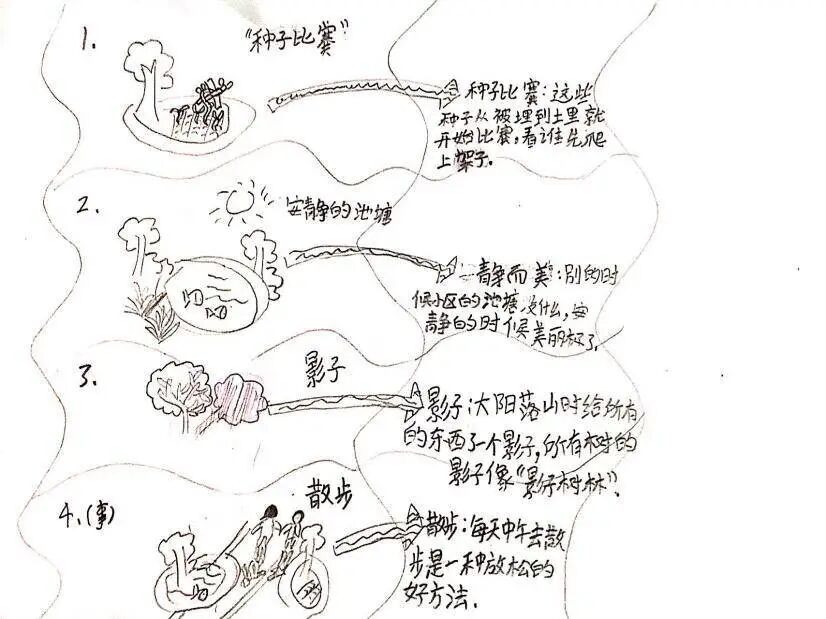 1.
"种子比赛"
种子比赛:这些
种子从被埋到土里就
开始比赛,看谁先爬
上架子。
2.
安静的池塘
静而美:别的时
候小区的池塘没什么,安
静的时候美丽极了
3.
影子
影子:太阳落山时给所有
的东西了一个影子,所有树的
影子像"影子树林"。
4.(事)
散步
散步:每天中午去散
步是一种放松的
好方法.